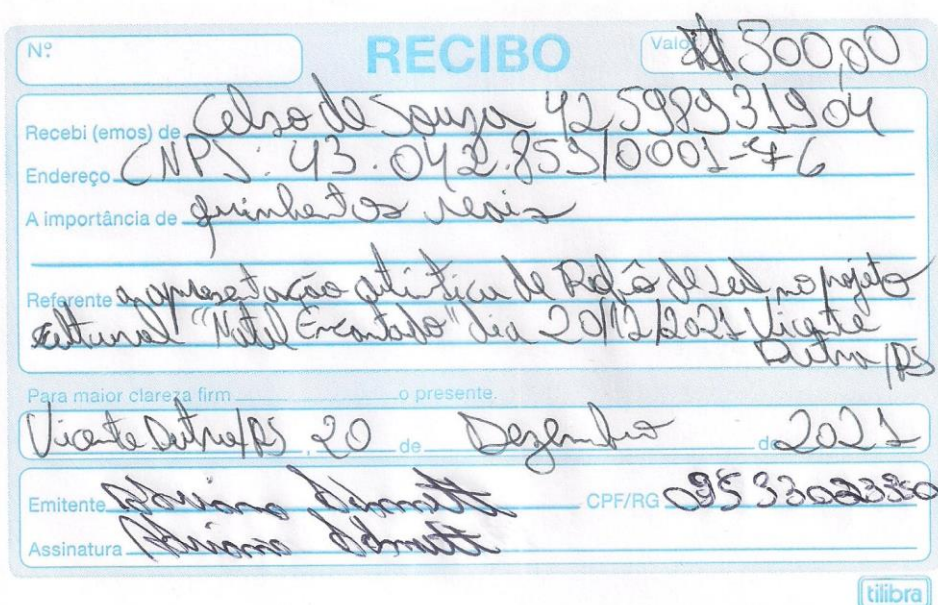 Nº RECIBO Valor R$ 500,00
Recebi (emos) de Celso de Souza 42598931904
Endereço CNPJ: 43.042.853/0001-76
A importância de quinhentos reais
Referente a apresentação artística de Robô de Led no projeto
cultural "Natal Encantado" dia 20/12/2021 Vicente
Dutra/RS
Para maior clareza firm o presente.
Vicente Dutra/RS, 20 de Dezembro de 2021
Emitente Schmitt CPF/RG
Assinatura Schmitt
tilibra